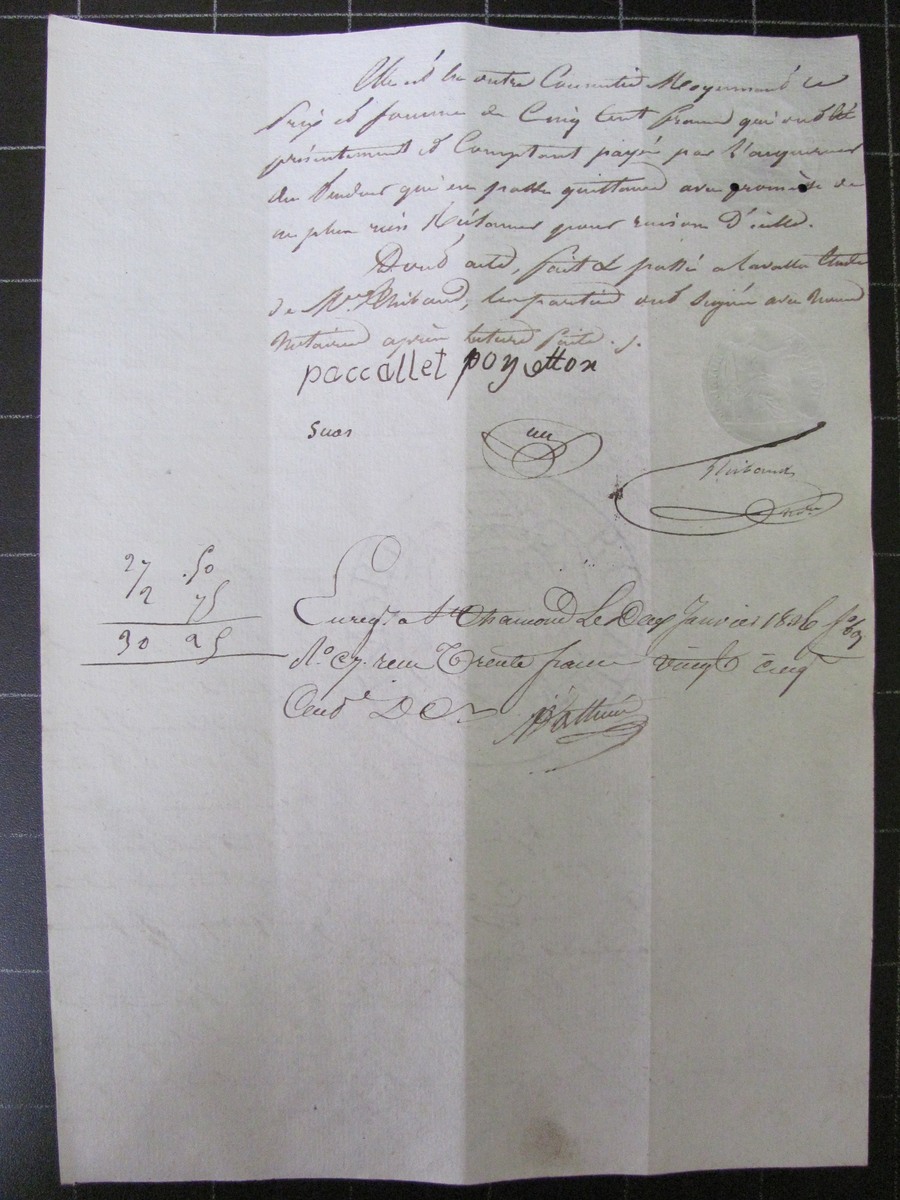 Elle est en outre Consentie Moyennant le
Prix et Somme de Cinq Cent francs qui ont été
présentement et Comptant payés par L'acquereur
au Vendeur qui en passe quittance avec promesse de
ne plus rien Réclamer pour raison D'icelle.
Dont acte, fait & passé a Lavalla Etude
de Me Thibaud, les parties ont Signé avec Nous
Notaires après lecture faite.
paccallet poyetton
suas
Thibaud
Nre
27 .50
2 75
30 25
Enregt. a St. Chamond Le Janvier 18 fo
No. reçu Trente francs vingt cinq
Cent.